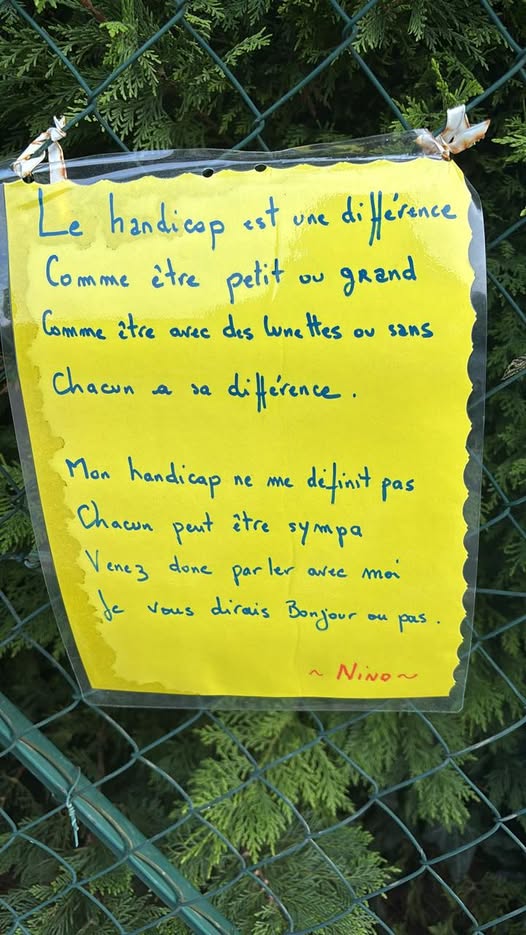 Le handicap est une différence
Comme être petit ou grand
Comme être avec des lunettes ou sans
Chacun a sa différence.
Mon handicap ne me définit pas
Chacun peut être sympa
Venez donc parler avec moi
Je vous dirais Bonjour ou pas.
~ Nino ~